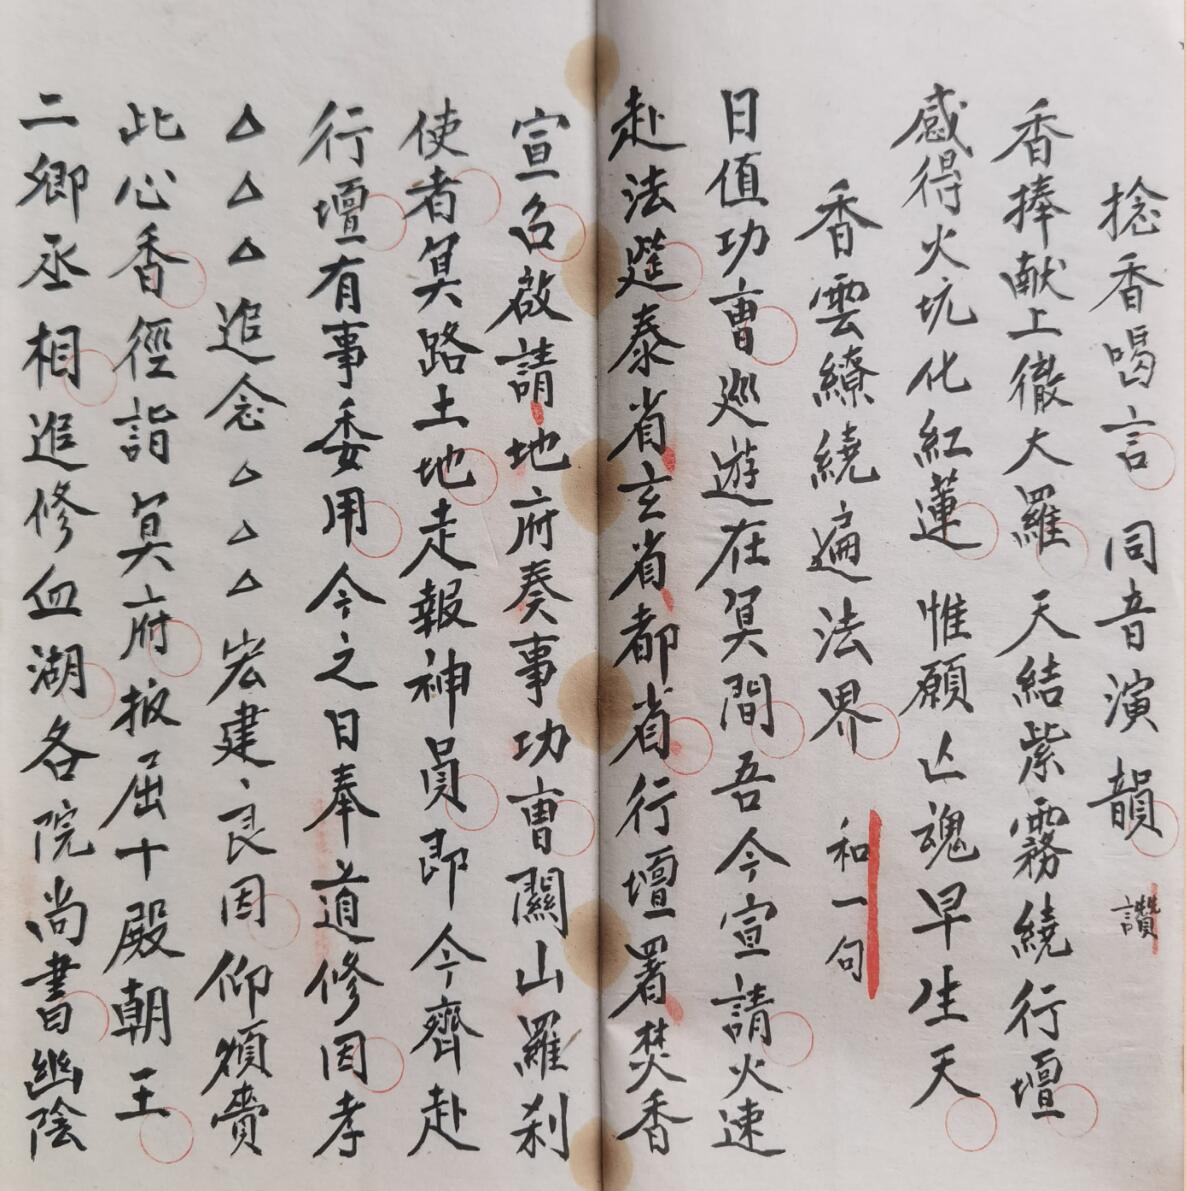 捻香喝言 同音演韻 讚
香捧献上徹大羅 天結紫霧繞行壇
感得火坑化紅蓮 惟願亾魂早生天
香雲繚繞遍法界 和一句
日值功曹巡遊在冥間吾今宣請火速
赴法筵泰省玄省都省行壇署焚香
宣召啟請地府奏事功曹關山羅刹
使者冥路土地走報神員即今齊赴
行壇有事委用今之日奉道修因孝
△△△追念△△△宏建良因仰煩賫
此心香徑詣冥府披屈十殿朝王
二卿丞相追修血湖各院尚書幽陰